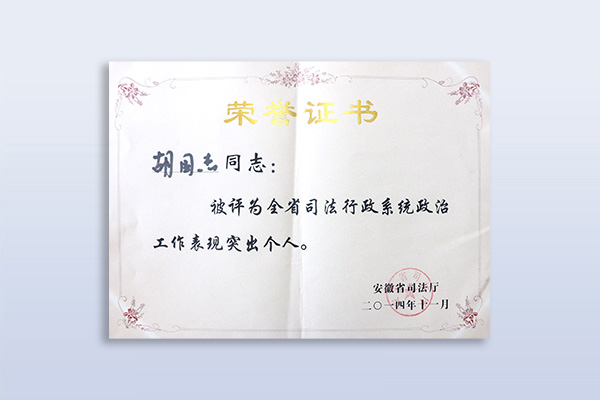 荣誉证书
胡国杰同志：
被评为全省司法行政系统政治
工作表现突出个人。
安徽省司法厅
二〇一四年十一月